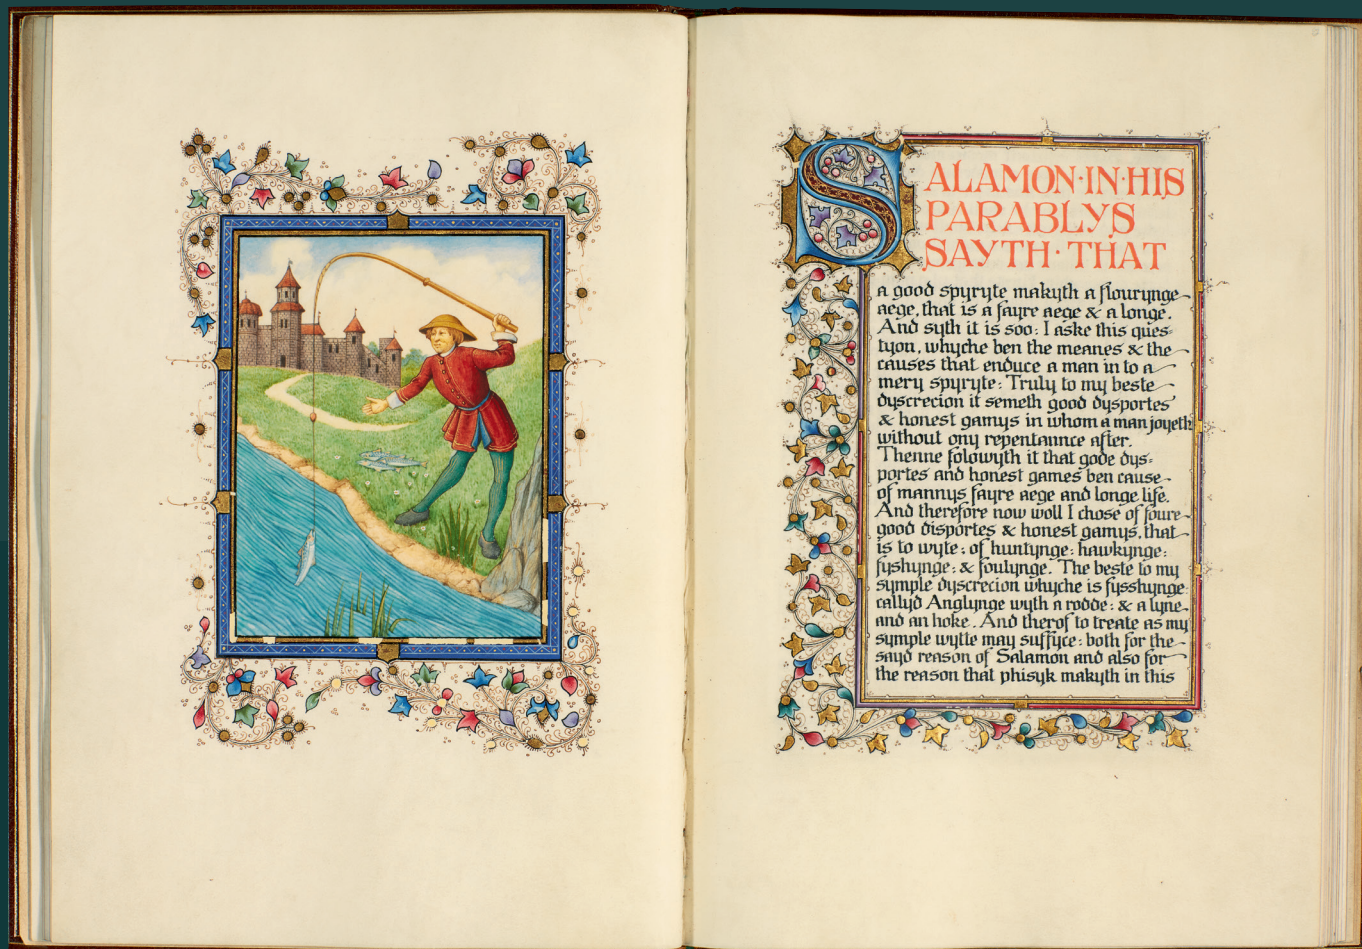 SALAMON·IN·HIS
PARABLYS
SAYTH·THAT
a good spyryte makyth a flourynge
aege, that is a fayre aege & a longe.
And syth it is soo: I aske this ques-
tyon, whyche ben the meanes & the
causes that enduce a man in to a
mery spyryte: Truly to my beste
dyscrecion it semeth good dysportes
& honest gamys in whom a man joyeth
without ony repentannce after.
Thenne folowyth it that gode dys-
portes and honest games ben cause
of mannys fayre aege and longe life.
And therefore now woll I chose of foure
good disportes & honest gamys, that
is to wyte: of huntynge: hawkynge:
fyshynge: & foulynge. The beste to my
symple dyscrecion whyche is fysshynge:
callyd Anglynge wyth a rodde: & a lyne
and an hoke. And therof to treate as my
symple wytte may suffyce: both for the
sayd reason of Salamon and also for
the reason that phisyk makyth in this